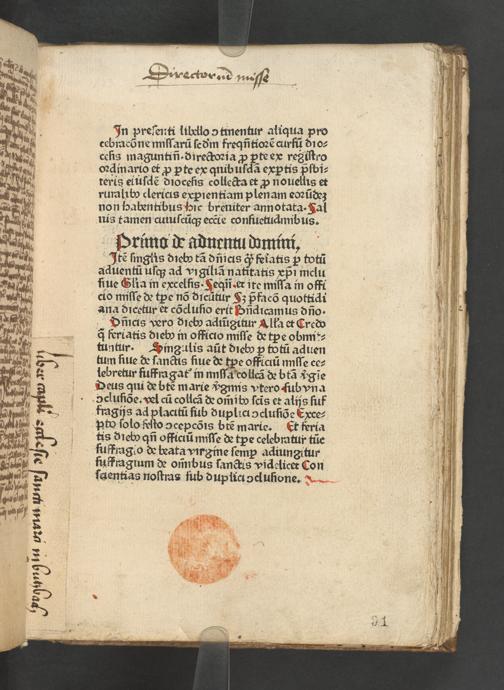 Directorium misse
In presenti libello ↄtinentur aliqua pro
celebracōne missarū scdm freqn̄tiorē cursū dio-
cesis maguntin̄. directoria ꝓ ꝑte ex registro
ordinario et ꝓ ꝑte ex quibusdā exꝑtis p̄sbi-
teris eiusdē diocesis collecta et ꝓ nouellis et
ruralibꝰ clericis exꝑientiam plenam eorūdē
non habentibus hic breuiter annotata. Sal
uis tamen cuiuscūqꝫ ecc̄ie consuetudinibus.
Primo de aduentu domini.
Itē singl'is diebꝰ tā dn̄icis qͣꝫ feriatis ꝑ totū
aduentū usqꝫ ad vigiliā natiuitatis xp̄i inclu
siue Gl'ia in excelsis. Seqn̄. et ite missa in offi
cio misse de tp̄e nō dicūtur Sꝫ p̄facō quottidi
ana dicetur et cōclusio erit Bn̄dicamus dn̄o.
Dn̄icis vero diebꝰ adiūgitur All'a et Credo
q̄ feriatis diebꝰ in officio misse de tp̄e obmit-
tūtur. Singulis aūt diebꝰ ꝑ totū aduen
tum siue de sanctis siue de tp̄e officiū misse ce-
lebretur suffragat' in missa collcā de btā v̄gīe
Deus qui de btē marie v̄ginis vtero sub vna
ↄclusiōe. vel cū collcā de om̄ibꝰ sc̄is et alijs suf
fragijs ad placitū sub duplici ↄclusiōe Exce-
pto solo festo ↄcepcōis btē marie. Et feria
tis diebꝰ qn̄ officiū misse de tp̄e celebratur tūc
suffragiū de beata virgine semꝑ adiungitur
suffragium de om̄ibus sanctis videlicet Con
scientias nostras sub duplici ↄclusione.
liber capli ecclesie sancti marci in butzbach
91